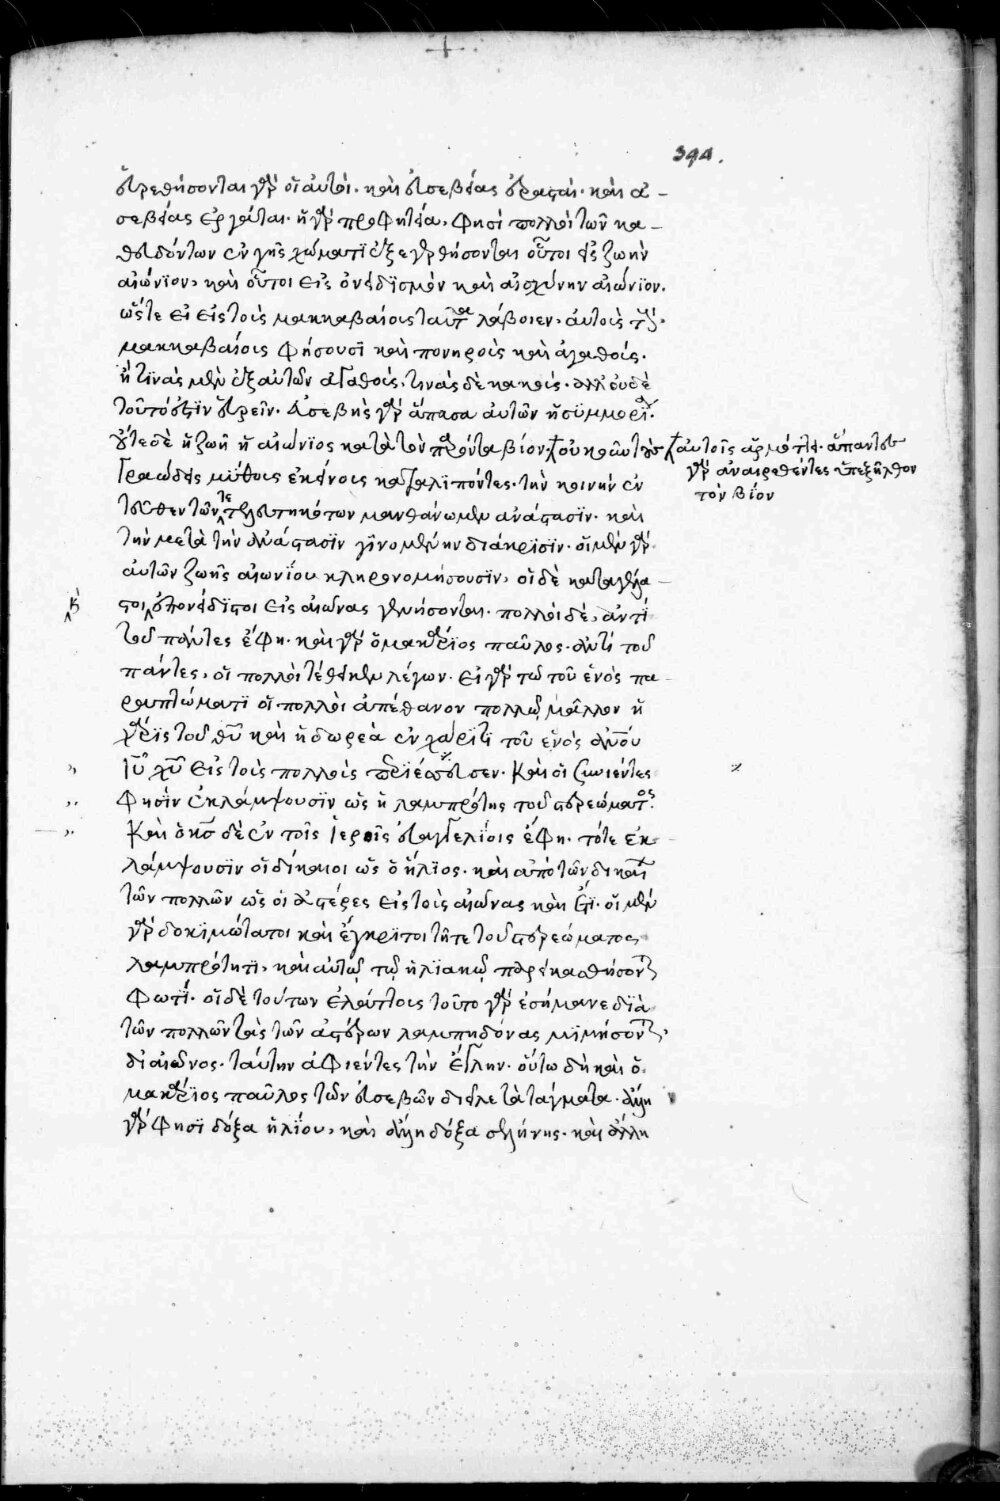 394.
εὑρεθήσονται γὰρ οἱ αὐτοὶ· καὶ εὐσεβείας ἐρασταὶ· καὶ ἀ-
σεβείας ἐργάται· ἡ γὰρ προφητεία, φησὶ πολλοὶ τῶν κα-
θευδόντων ἐν γῆς χώματι ἐξεγερθήσονται οὗτοι εἰς ζωὴν
αἰώνιον, καὶ οὗτοι εἰς ὀνειδισμὸν καὶ αἰσχύνην αἰώνιον.
ὥστε εἰ εἰς τοὺς μακκαβαίους ταῦτα λάβοιεν, αὐτοὺς τοὺς
μακκαβαίους φήσουσι καὶ πονηροὺς καὶ ἀγαθούς.
ἢ τινὰς μὲν ἐξ αὐτῶν ἀγαθούς, τινὰς δὲ κακούς. ἀλλ' οὐδὲ
τοῦτό ἐστιν εὑρεῖν. εὐσεβὴς γὰρ ἅπασα αὐτῶν ἡ συμμορία.
οὔτε δὲ ἡ ζωὴ ἡ αἰώνιος κατὰ τὸν παρόντα βίον
αὐτοῖς ἁρμόττει· ἅπαντες
γὰρ ἀναιρεθέντες ὑπεξῆλθον
τὸν βίον
γραώδεις μύθους ἐκείνοις καταλιπόντες, τὴν κοινὴν ἐν
τεῦθεν τῶν τε τετελευτηκότων μανθάνωμεν ἀνάστασιν· καὶ
τὴν μετὰ τὴν ἀνάστασιν γινομένην διάκρισιν· οἱ μὲν γὰρ
αὐτῶν ζωῆς αἰωνίου κληρονομήσουσιν, οἱ δὲ καταγέλα-
στοι καὶ ἐπονείδιστοι εἰς αἰῶνας γενήσονται. πολλοὶ δὲ, ἀντὶ
τοῦ πάντες ἔφη. καὶ γὰρ ὁ μακάριος παῦλος ἀντὶ τοῦ
πάντες, οἱ πολλοὶ τέθεικεν λέγων. εἰ γὰρ τῶ τοῦ ἑνὸς πα-
ραπτώματι οἱ πολλοὶ ἀπέθανον πολλῶ μᾶλλον ἡ
χάρις τοῦ θυ καὶ ἡ δωρεὰ ἐν χάριτι τοῦ ἑνὸς ἀνου
ιυ χυ εἰς τοὺς πολλοὺς ἐπερίσσευσεν. Καὶ οἱ συνιέντες
φησὶν ἐκλάμψουσιν ὡς ἡ λαμπρότης τοῦ στερεώματος.
Καὶ ὁ κς δὲ ἐν τοῖς ἱεροῖς εὐαγγελίοις ἔφη. τότε ἐκ-
λάμψουσιν οἱ δίκαιοι ὡς ὁ ἥλιος. καὶ ἀπὸ τῶν δικαίων
τῶν πολλῶν ὡς οἱ ἀστέρες εἰς τοὺς αἰῶνας καὶ ἔτι. οἱ μὲν
γὰρ δοκιμώτατοι καὶ ἔγκριτοι τῆ τε τοῦ στερεώματος
λαμπρότητι, καὶ αὐτῶ τῶ ἡλιακῶ παρεικασθήσονται
φωτί. οἱ δὲ τούτων ἐλάττους τοῦτο γὰρ ἐσήμανε διὰ
τῶν πολλῶν τὰς τῶν ἀστέρων λαμπηδόνας μιμήσονται,
δι αἰῶνος ταύτην ἀφιέντες τὴν αἴγλην. οὕτω δὴ καὶ ὁ
μακάριος παῦλος τῶν εὐσεβῶν διεῖλε τὰ τάγματα. ἄλλη
γὰρ φησὶ δόξα ἡλίου, καὶ ἄλλη δόξα σελήνης. καὶ ἄλλη